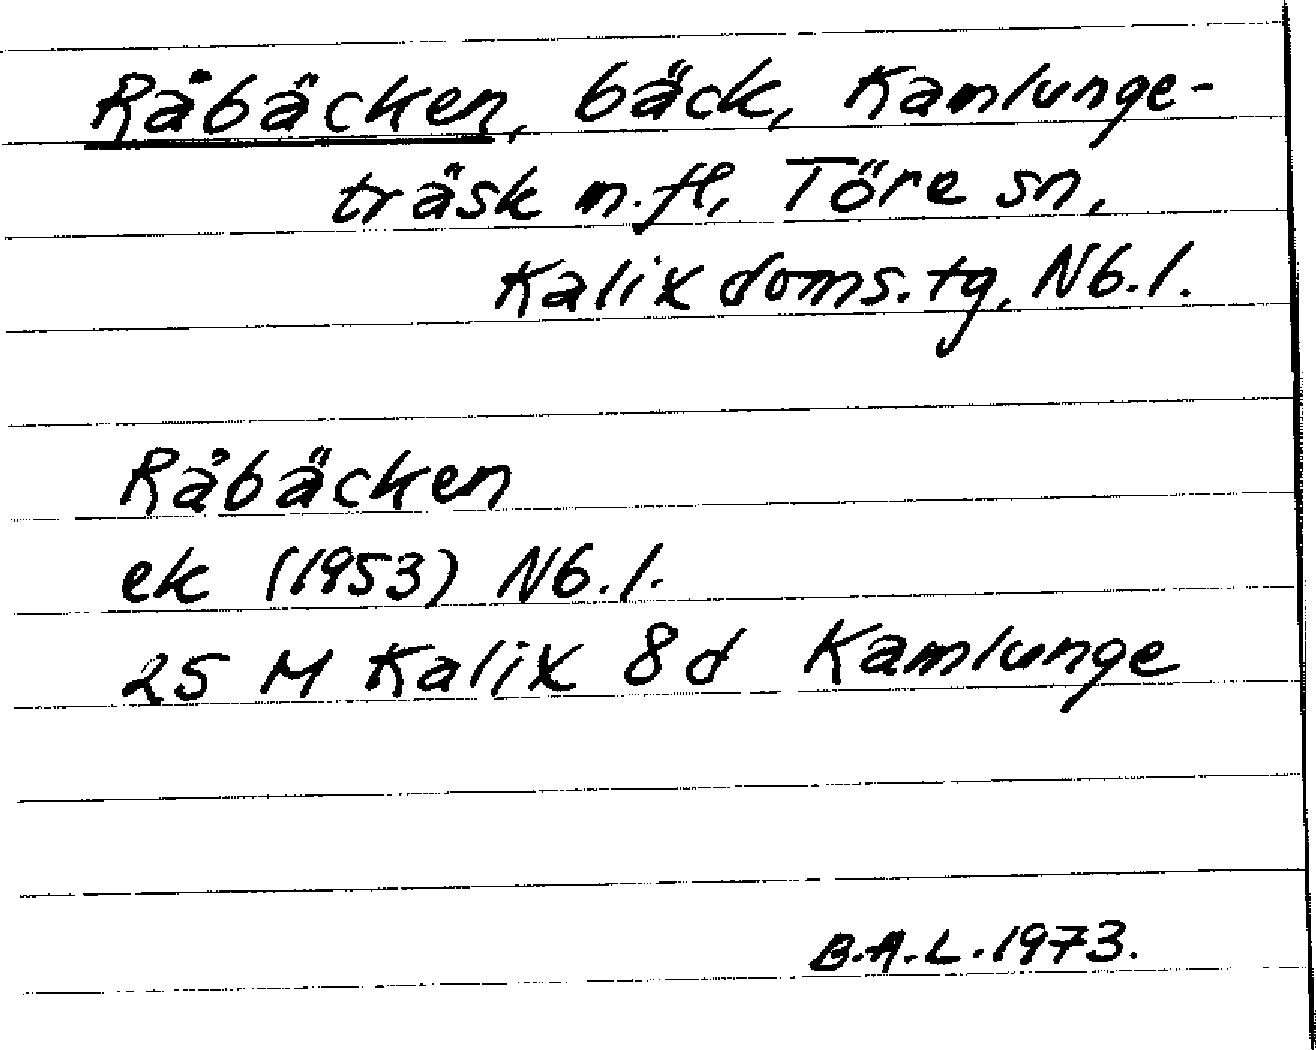 Råbäcken, bäck, Kamlunge-
träsk m.fl, Töre sn,
Kalix doms.tg, Nb.l.
Råbäcken
ek (1953) Nb.l.
25 M Kalix 8d Kamlunge
B.A.L.1973.